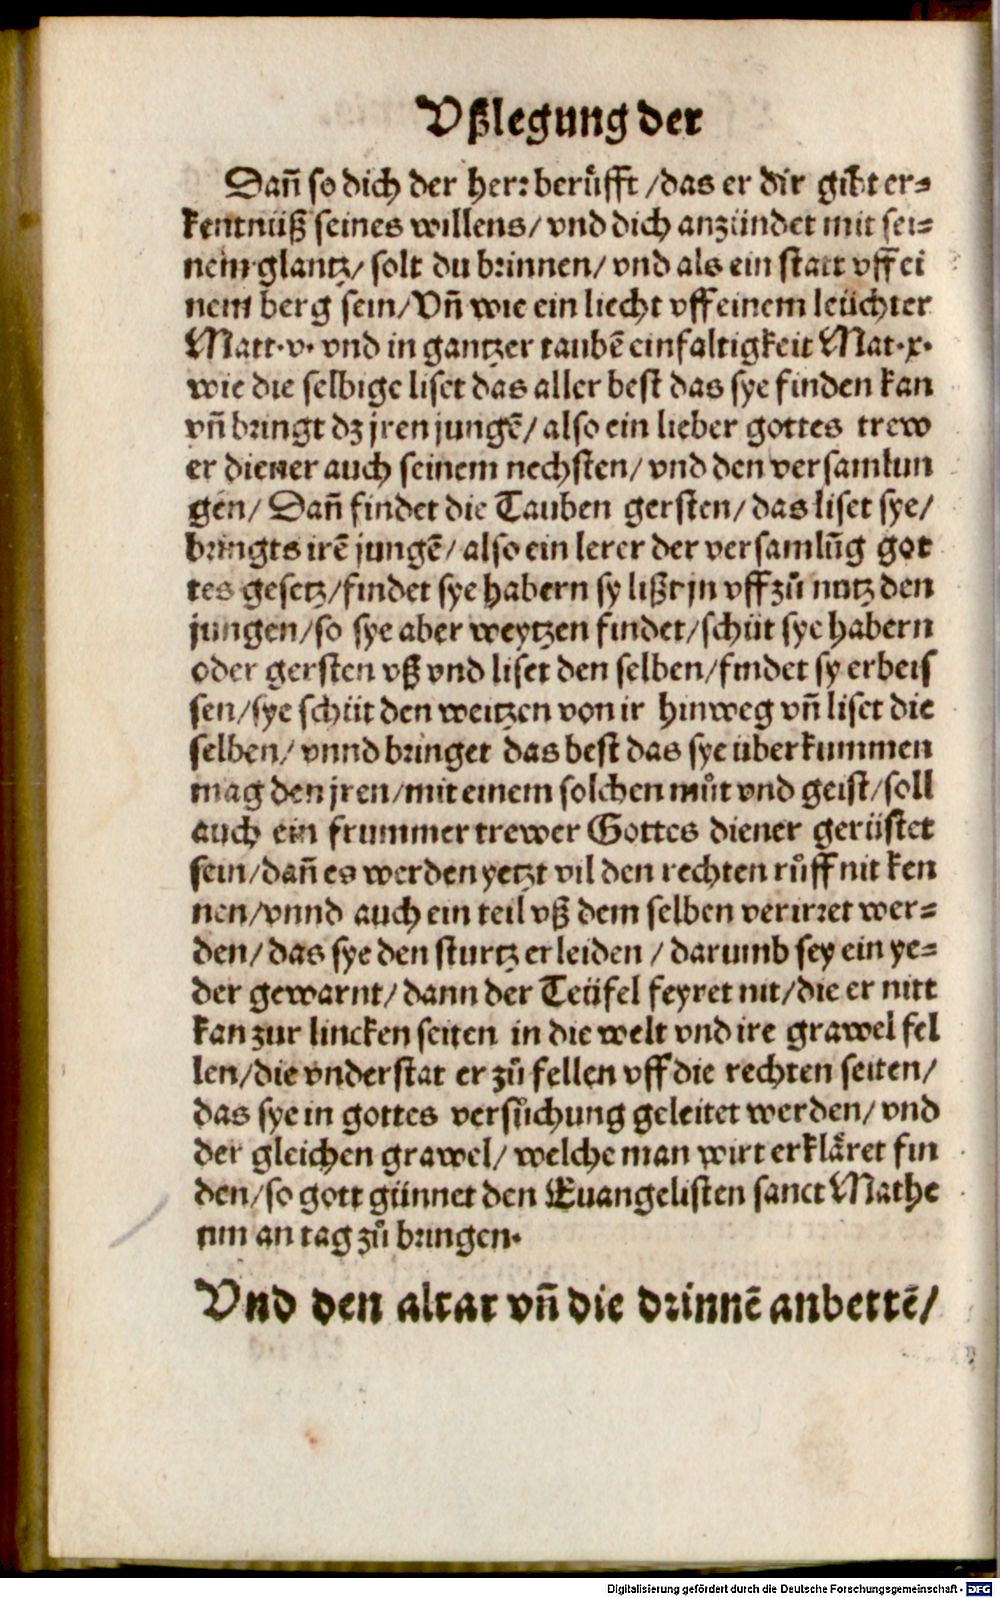 Vßlegung der
Dañ so dich der herr berůfft /das er dir gibt er=
kentnüß seines willens/ vnd dich anzündet mit sei=
nem glantz/ solt du brinnen/ vnd als ein statt vff ei
nem berg sein/ Vñ wie ein liecht vff einem leüchter
Matt.v. vnd in gantzer taubẽ einfaltigkeit Mat.x.
wie die selbige liset das aller best das sye finden kan
vñ bringt dz jren jungẽ/ also ein lieber gottes trew
er diener auch seinem nechsten/ vnd den versamlun
gen/ Dañ findet die Tauben gersten/ das liset sye/
bringts irẽ jungẽ/ also ein lerer der versamlũg got
tes gesetz/findet sye habern sy lißt jn vff zů nutz den
jungen/so sye aber weytzen findet/schüt sye habern
oder gersten vß vnd liset den selben/findet sy erbeis
sen/sye schüt den weitzen von ir hinweg vñ liset die
selben/ vnnd bringet das best das sye überkummen
mag den jren/mit einem solchen můt vnd geist/soll
auch ein frummer trewer Gottes diener gerüstet
sein/dañ es werden yetzt vil den rechten růff nit ken
nen/vnnd auch ein teil vß dem selben verirret wer=
den/ das sye den sturtz erleiden / darumb sey ein ye=
der gewarnt/ dann der Teüfel feyret nit/die er nitt
kan zur lincken seiten in die welt vnd ire grawel fel
len/die vnderstat er zů fellen vff die rechten seiten/
das sye in gottes versůchung geleitet werden/ vnd
der gleichen grawel/ welche man wirt erkläret fin
den/so gott günnet den Euangelisten sanct Mathe
um an tag zů bringen.
Vnd den altar vñ die drinnẽ anbettẽ/
Digitalisierung gefördert durch die Deutsche Forschungsgemeinschaft - DFG